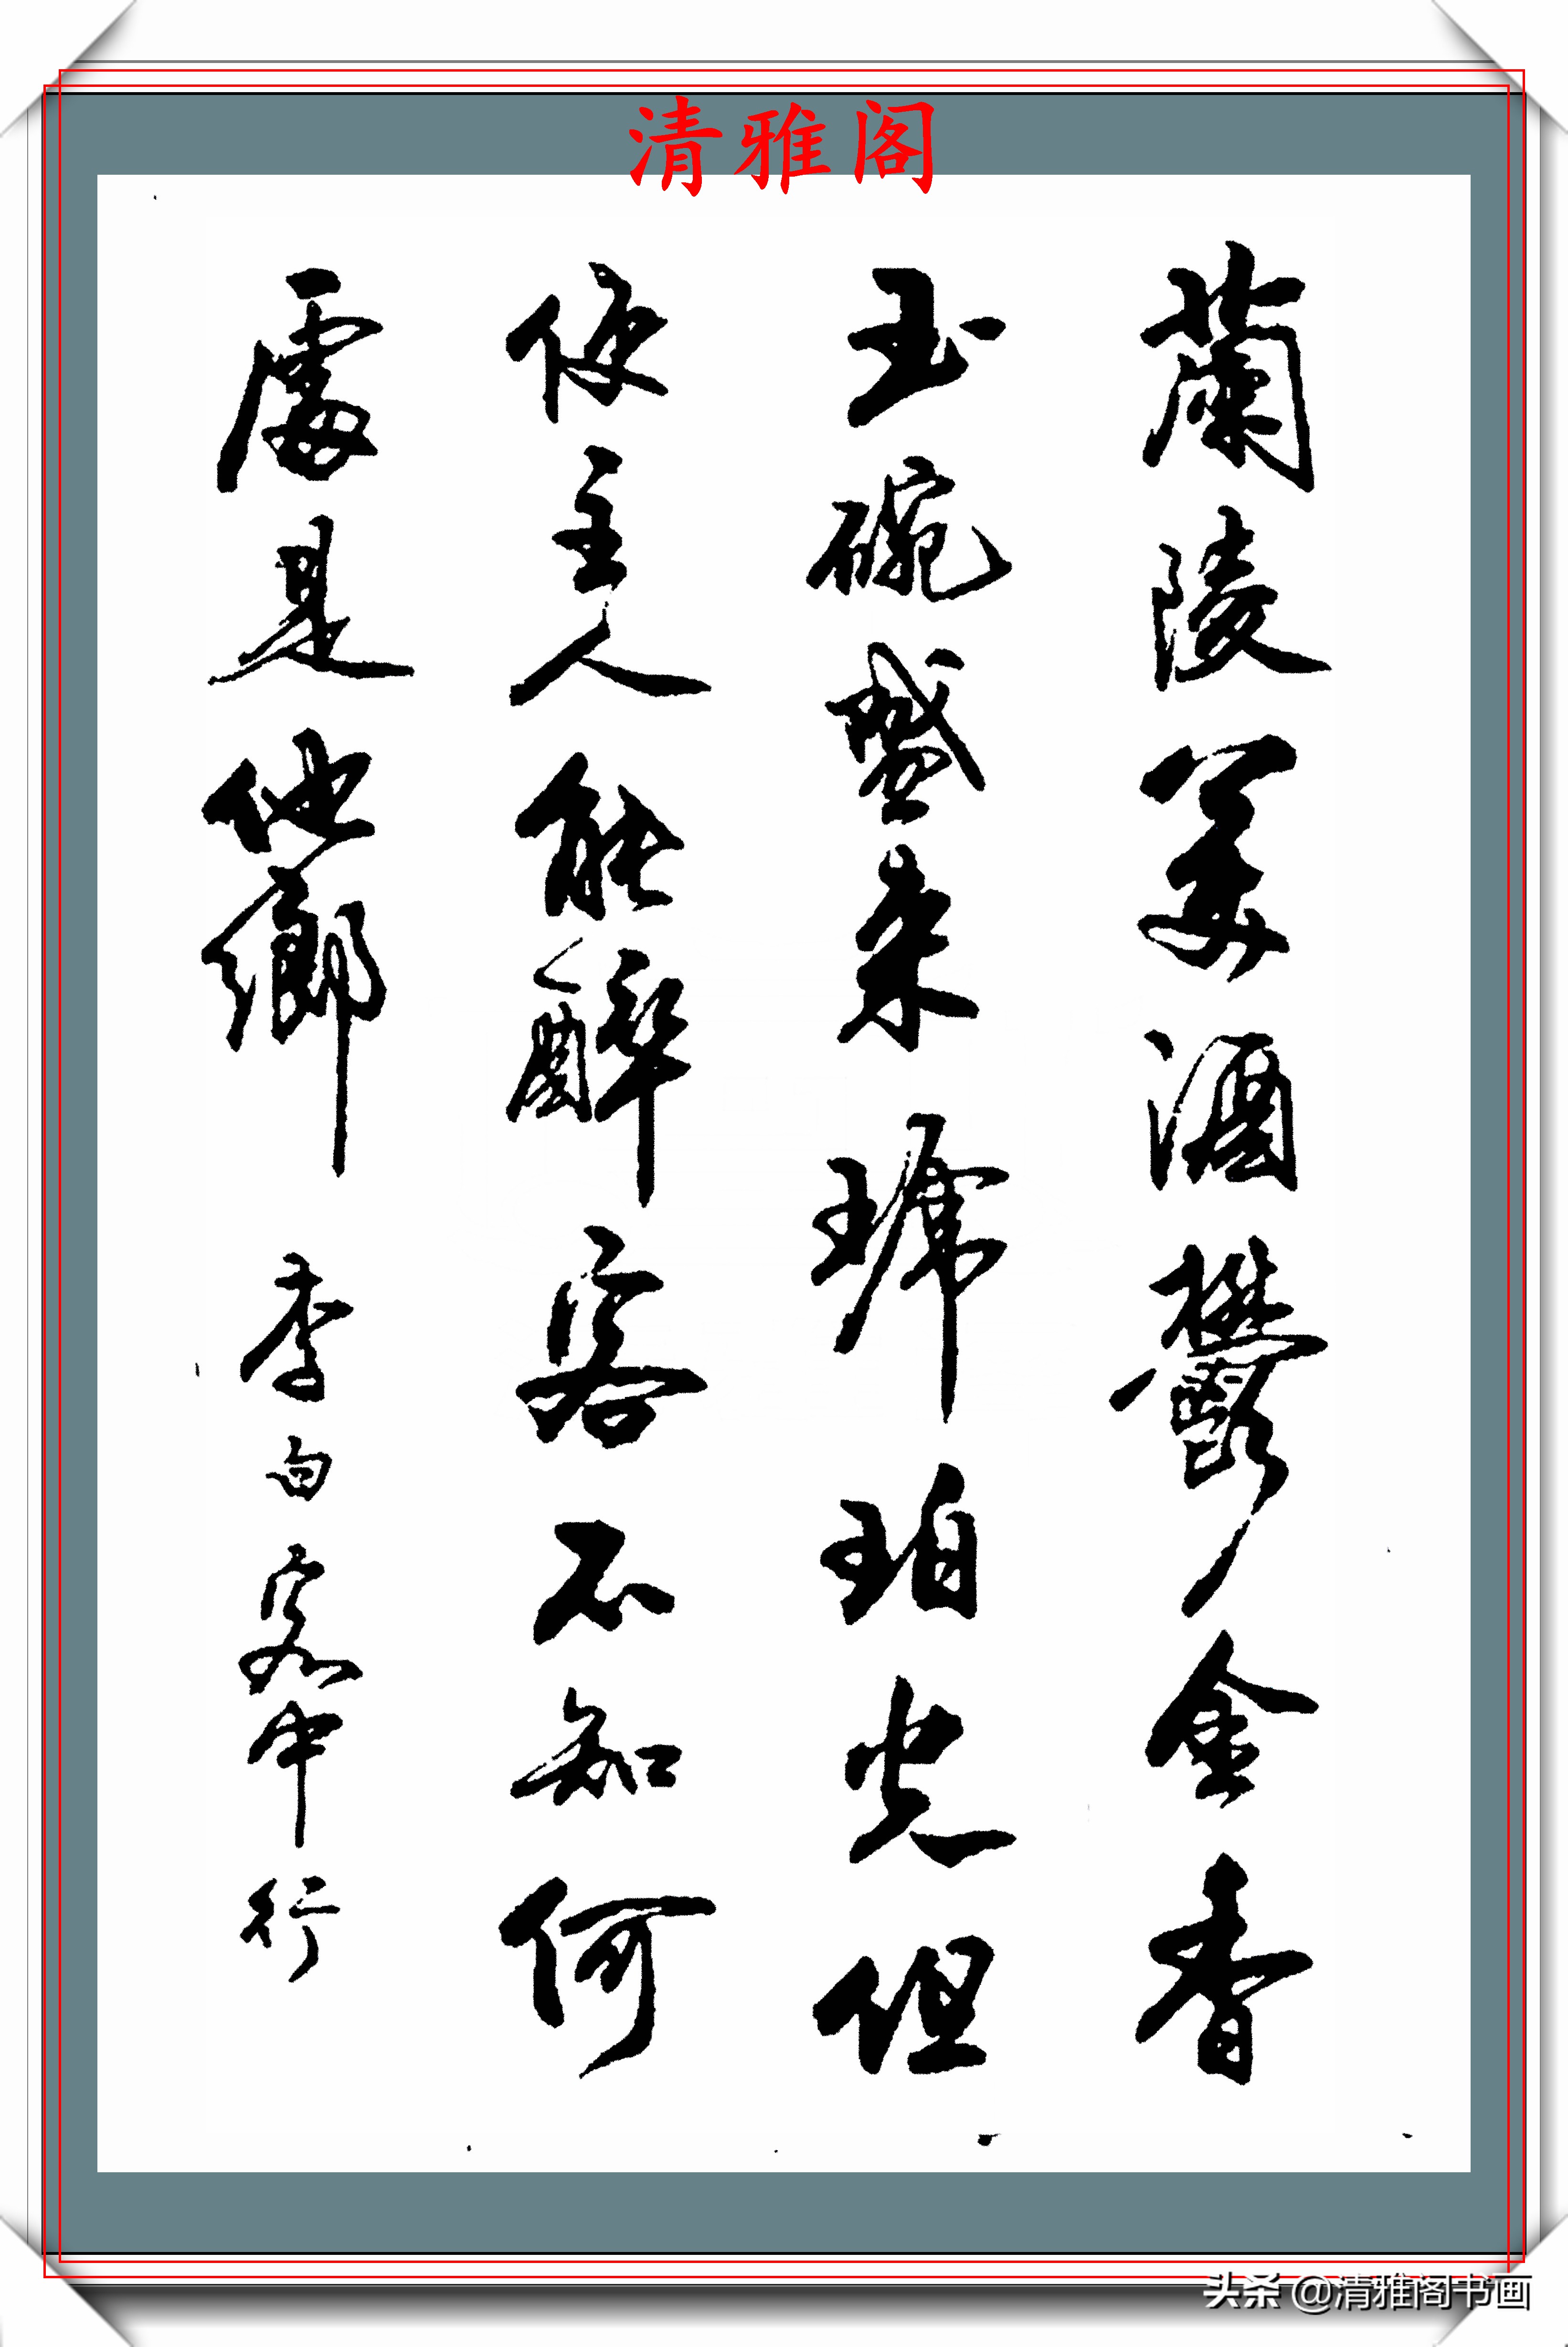 清雅阁
蘭陵美酒鬱金香
玉碗盛来琥珀光但
使主人能醉客不知何
處是他鄉 李白客中行
头条 @清雅阁书画